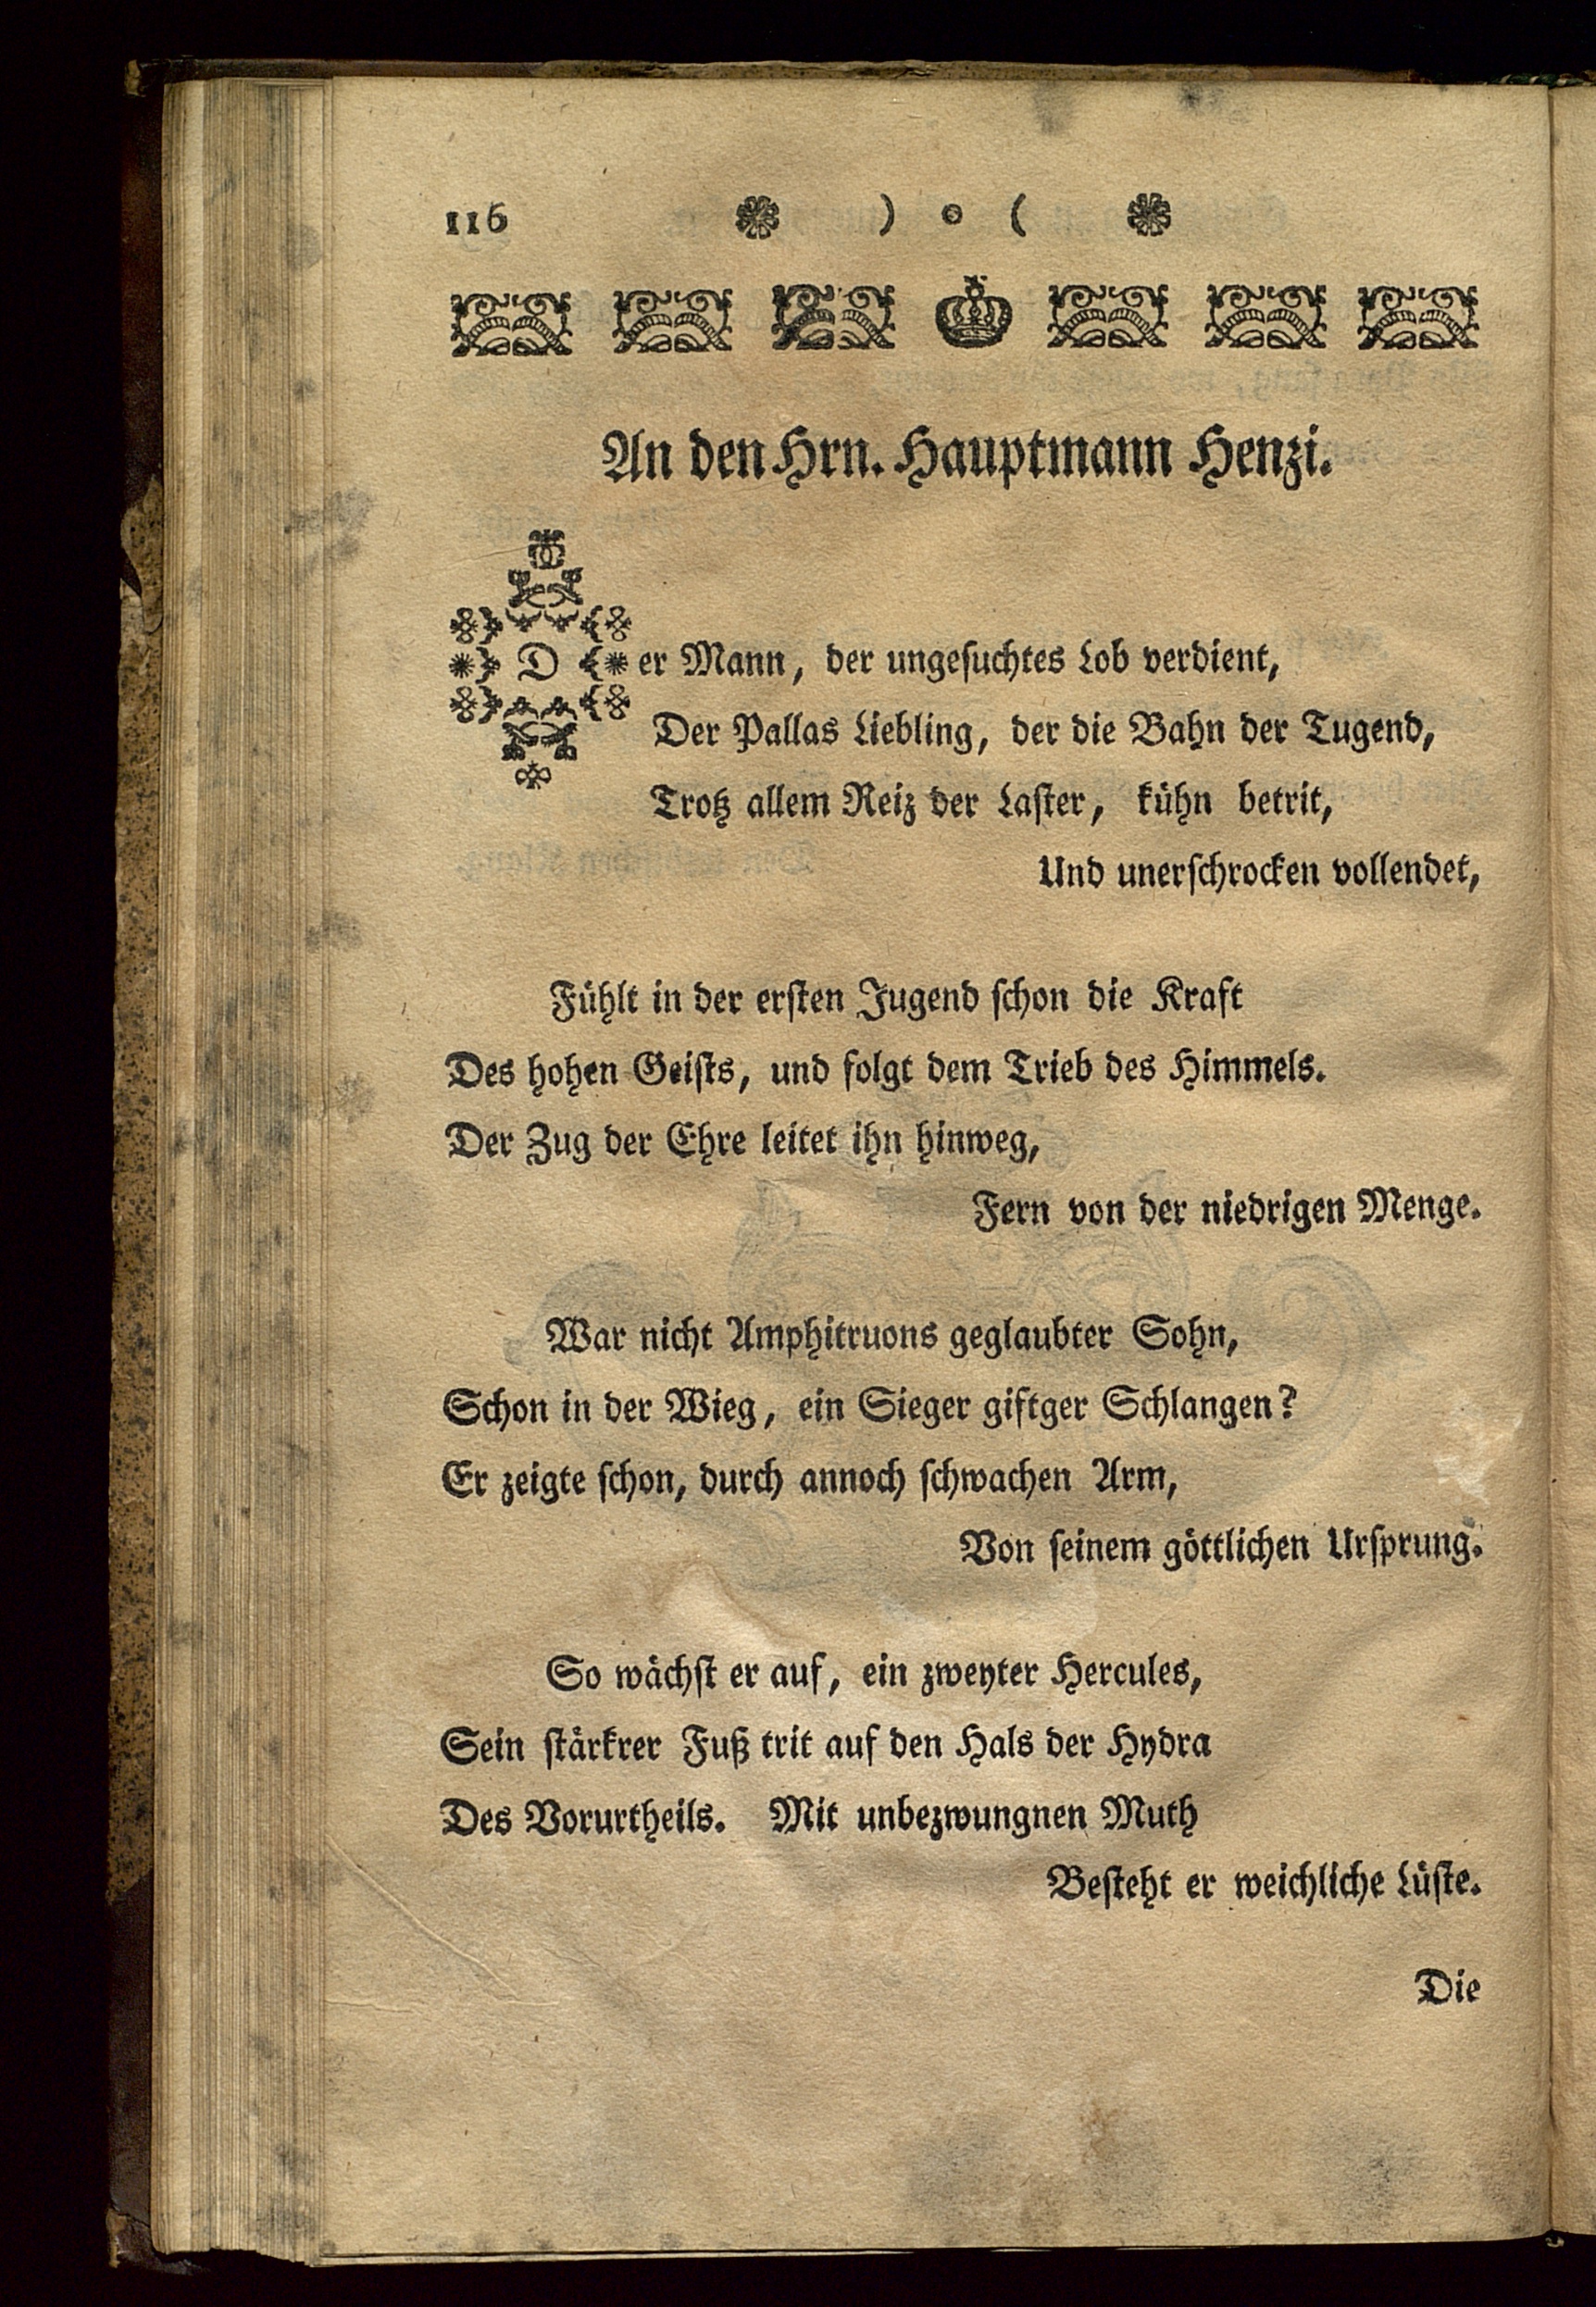 116 ) o (
An den Hrn. Hauptmann Henzi.
Der Mann, der ungesuchtes Lob verdient,
Der Pallas Liebling, der die Bahn der Tugend,
Trotz allem Reiz der Laster, kühn betrit,
Und unerschrocken vollendet,
Fühlt in der ersten Jugend schon die Kraft
Des hohen Geists, und folgt dem Trieb des Himmels.
Der Zug der Ehre leitet ihn hinweg,
Fern von der niedrigen Menge.
War nicht Amphitruons geglaubter Sohn,
Schon in der Wieg, ein Sieger giftger Schlangen?
Er zeigte schon, durch annoch schwachen Arm,
Von seinem göttlichen Ursprung.
So wächst er auf, ein zweyter Hercules,
Sein stärkrer Fuß trit auf den Hals der Hydra
Des Vorurtheils. Mit unbezwungnen Muth
Besteht er weichliche Lüste.
Die